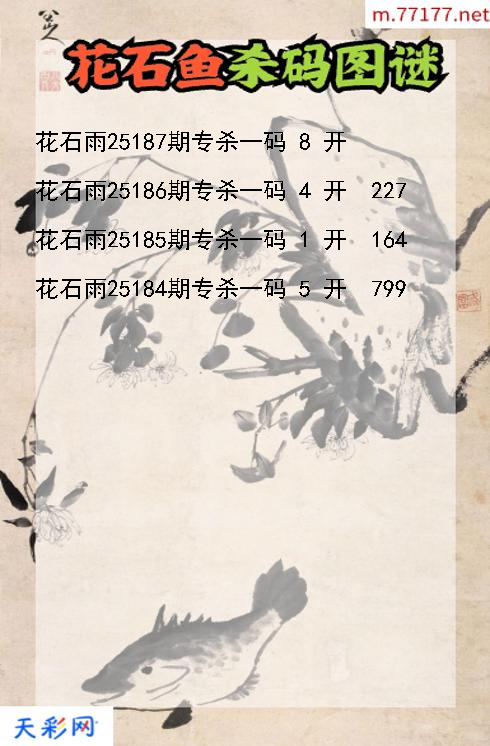 m.77177.net
八山
花石鱼杀码图谜
花石雨25187期专杀一码 8 开
花石雨25186期专杀一码 4 开 227
花石雨25185期专杀一码 1 开 164
花石雨25184期专杀一码 5 开 799
天彩网